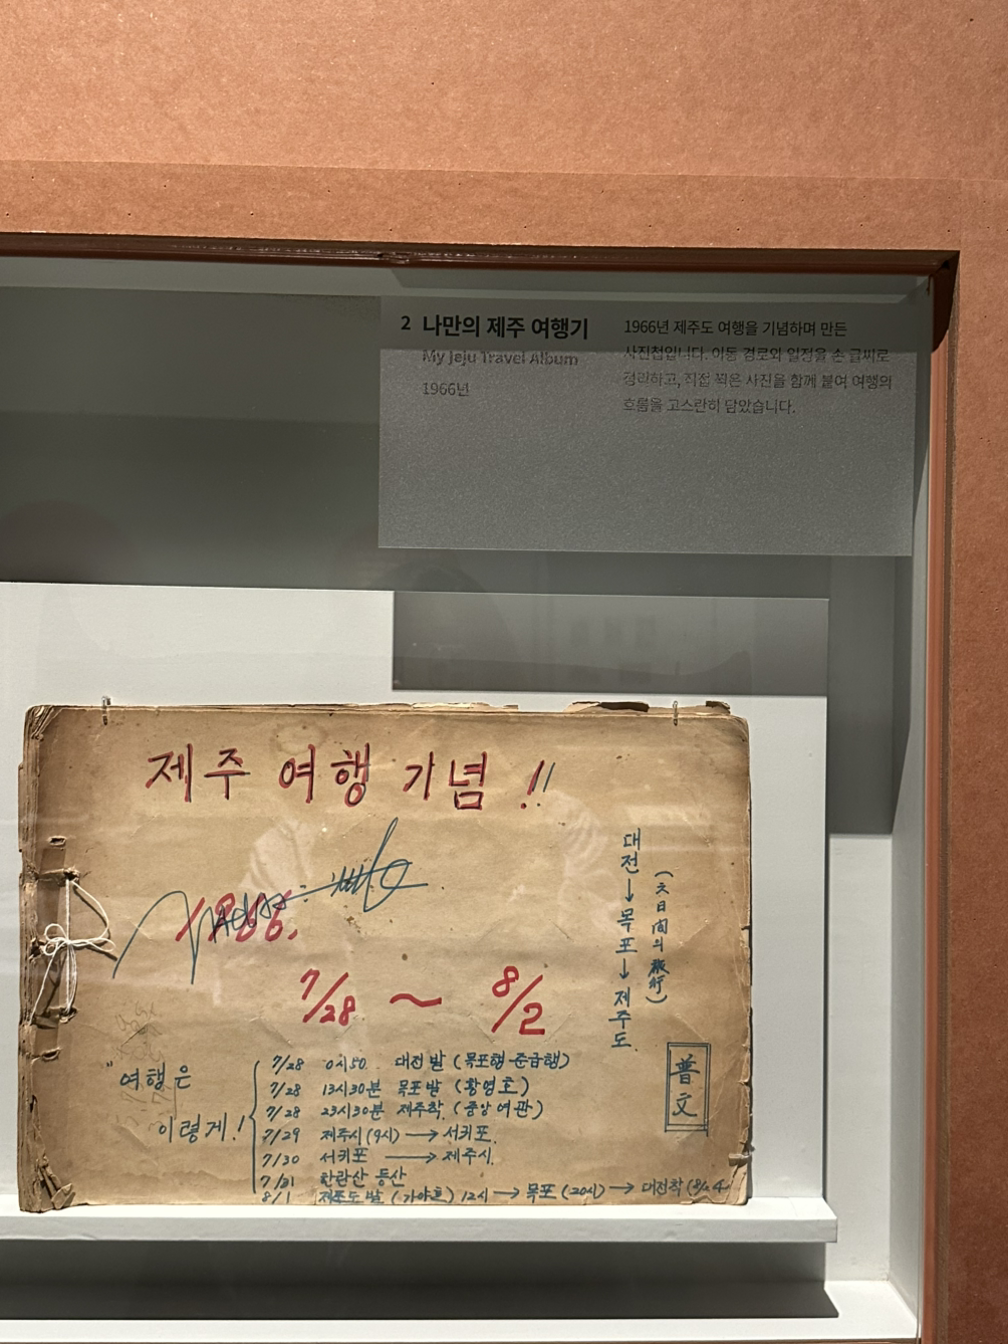 2 나만의 제주 여행기
My Jeju Travel Album
1966년
1966년 제주도 여행을 기념하며 만든
사진첩입니다. 이동 경로와 일정을 손 글씨로
정리하고, 직접 찍은 사진을 함께 붙여 여행의
흐름을 고스란히 담았습니다.
제주 여행 기념!!
1966.
7/28 ~ 8/2
대전→목포→제주도
(六日間의 旅行)
普文
"여행은
이렇게!
7/28 0시50. 대전발 (목포행 준급행)
7/28 13시30분 목포발 (황영호)
7/28 23시30분 제주착. (중앙여관)
7/29 제주시(9시) → 서귀포.
7/30 서귀포 → 제주시.
7/31 한라산 등산
8/1 제주도발 (가야호) 12시 → 목포 (20시) → 대전착